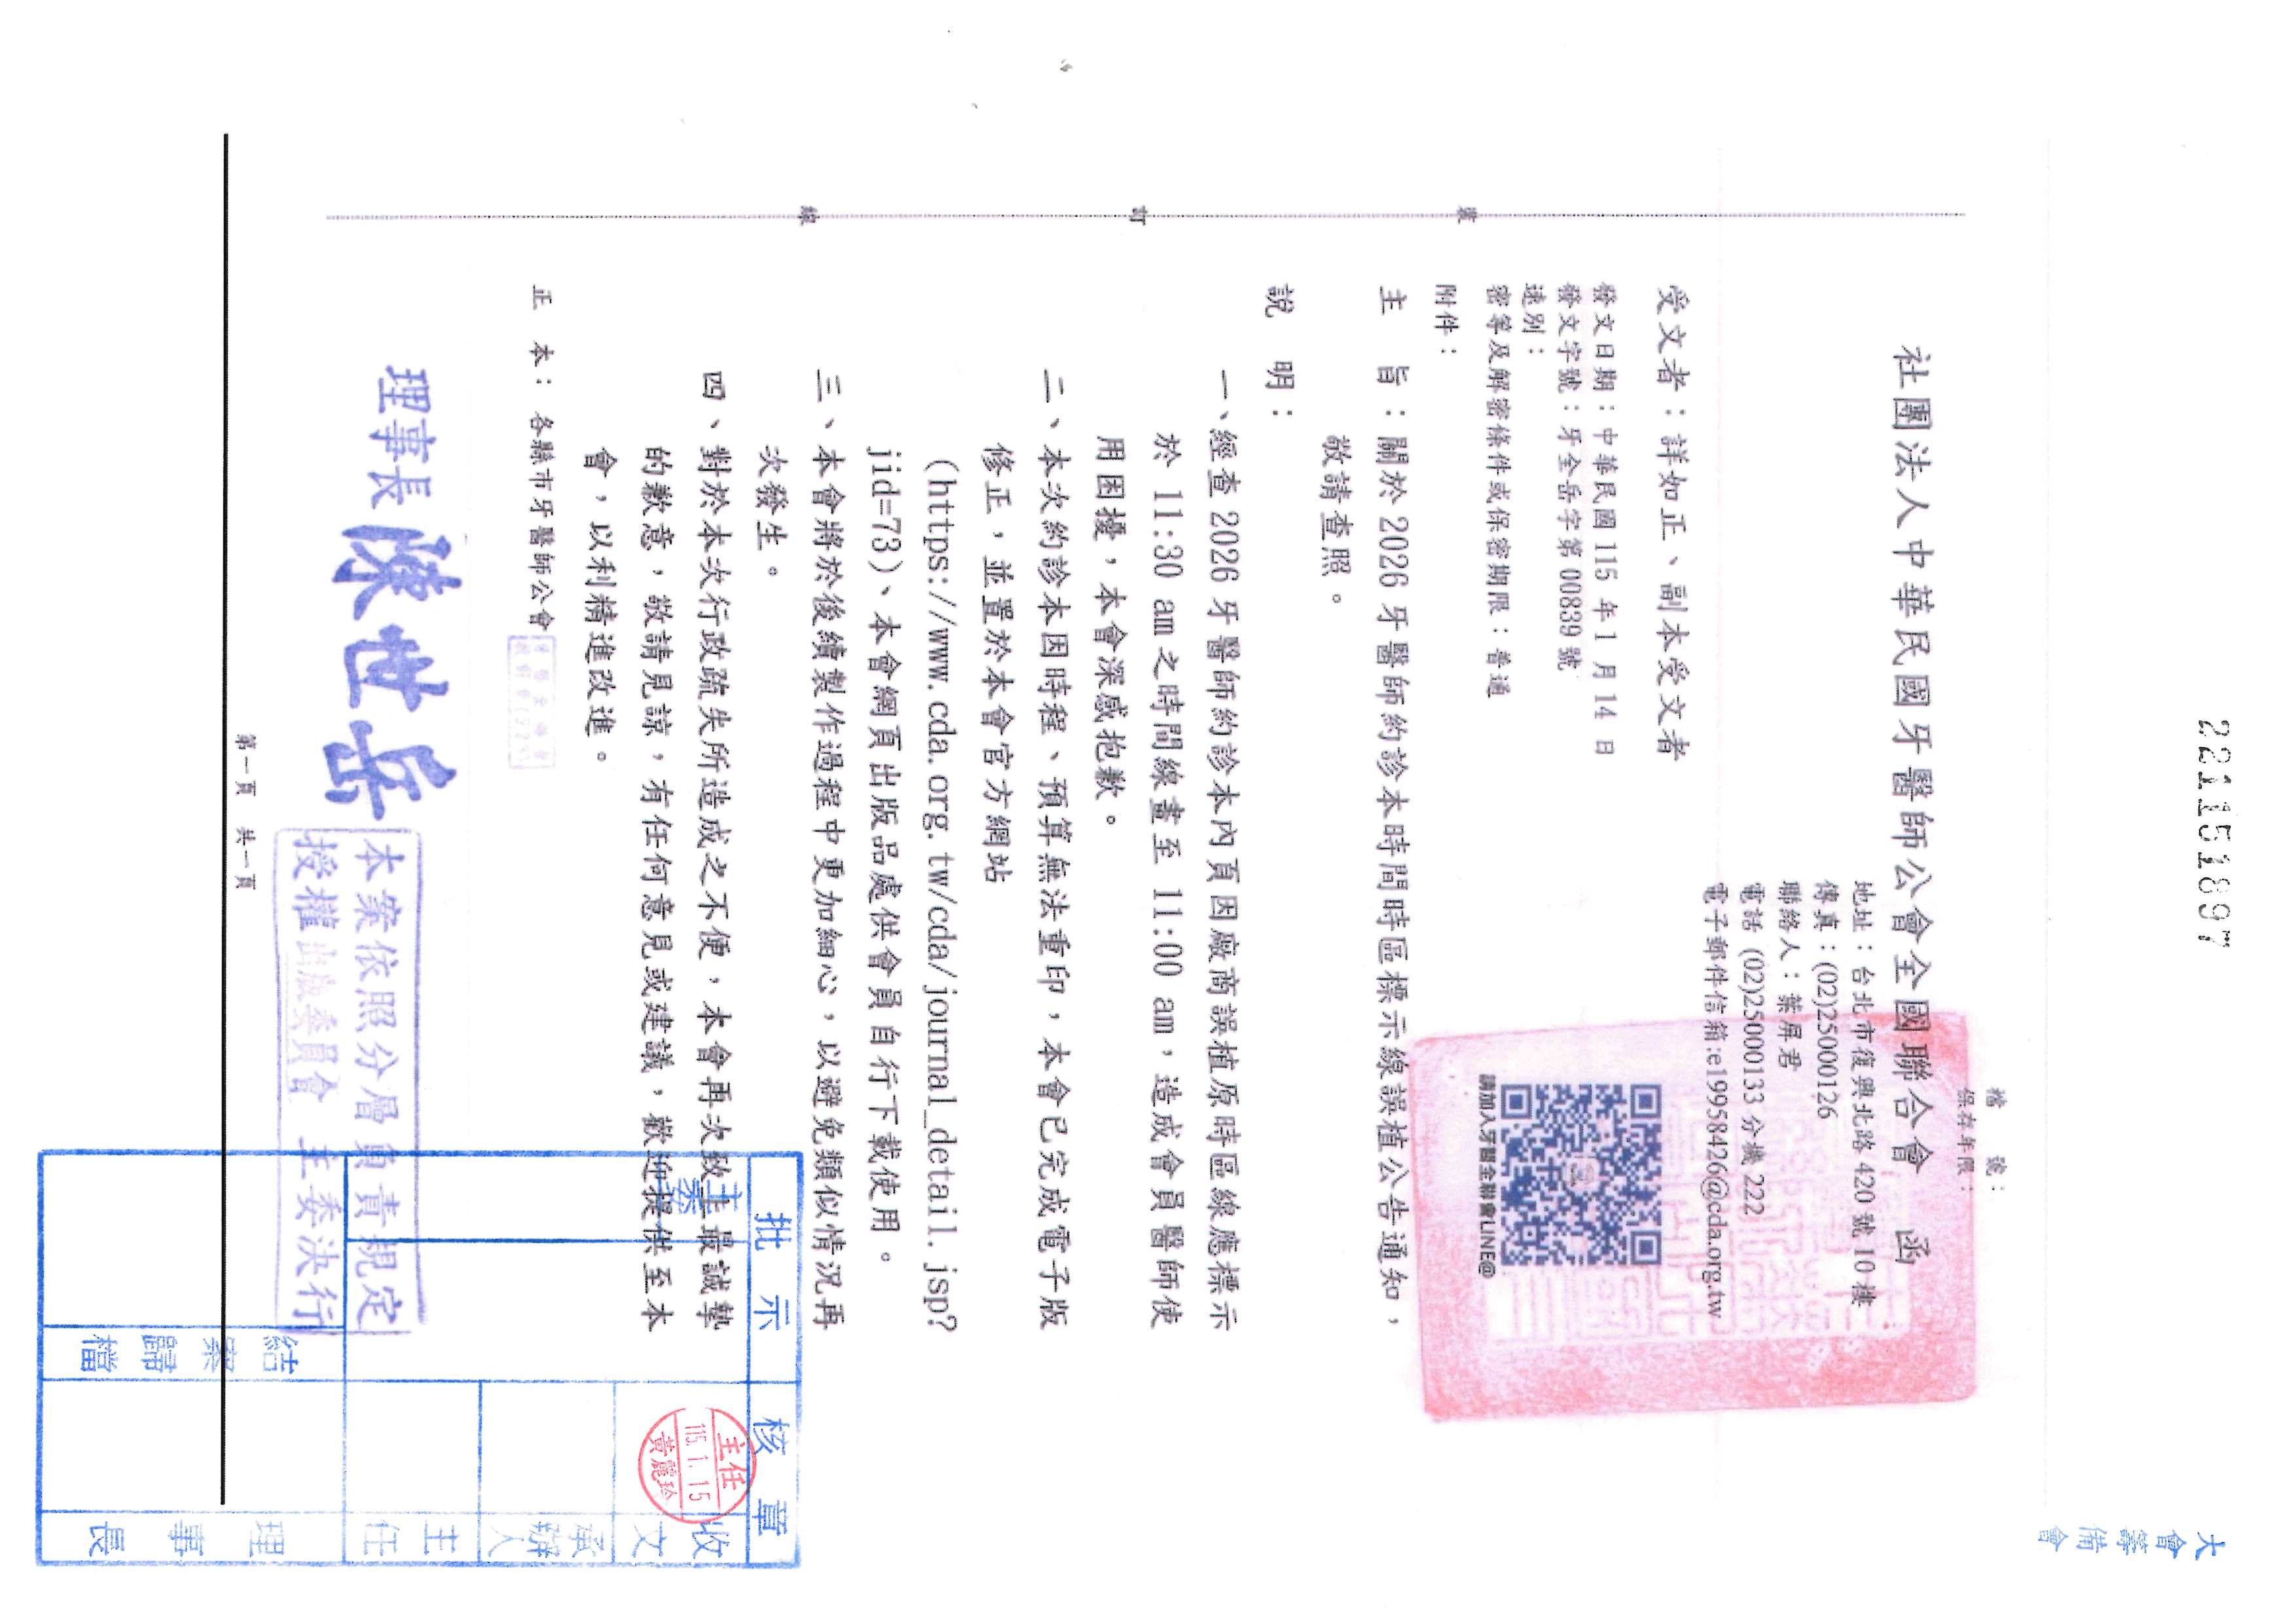 221151897
大會籌備會
檔　　號：
保存年限：
社團法人中華民國牙醫師公會全國聯合會　函
地址：台北市復興北路 420 號 10 樓
傳真：(02)25000126
聯絡人：葉屏君
電話 (02)25000133 分機 222
電子郵件信箱:e19958426@cda.org.tw
請加入牙醫全聯會LINE@
受文者：詳如正、副本受文者
發文日期：中華民國 115 年 1 月 14 日
發文字號：牙全岳字第 00839 號
速別：
密等及解密條件或保密期限：普通
附件：
主　旨：關於 2026 牙醫師約診本時間時區標示線誤植公告通知，
敬請查照。
說　明：
一、經查 2026 牙醫師約診本內頁因廠商誤植原時區線應標示
於 11:30 am 之時間線畫至 11:00 am，造成會員醫師使
用困擾，本會深感抱歉。
二、本次約診本因時程、預算無法重印，本會已完成電子版
修正，並置於本會官方網站
(https://www.cda.org.tw/cda/journal_detail.jsp?
jid=73)、本會網頁出版品處供會員自行下載使用。
三、本會將於後續製作過程中更加細心，以避免類似情況再
次發生。
四、對於本次行政疏失所造成之不便，本會再次致上最誠摯
的歉意，敬請見諒，有任何意見或建議，歡迎提供至本
會，以利精進改進。
正　本：各縣市牙醫師公會
理事長 陳世岳
本案依照分層負責規定
授權 出版委員會 主委決行
批示 核章
收文
承辦人
主任
理事長
結案歸檔
主任
115.1.15
黃麗玲
裝
訂
線
第一頁　共一頁